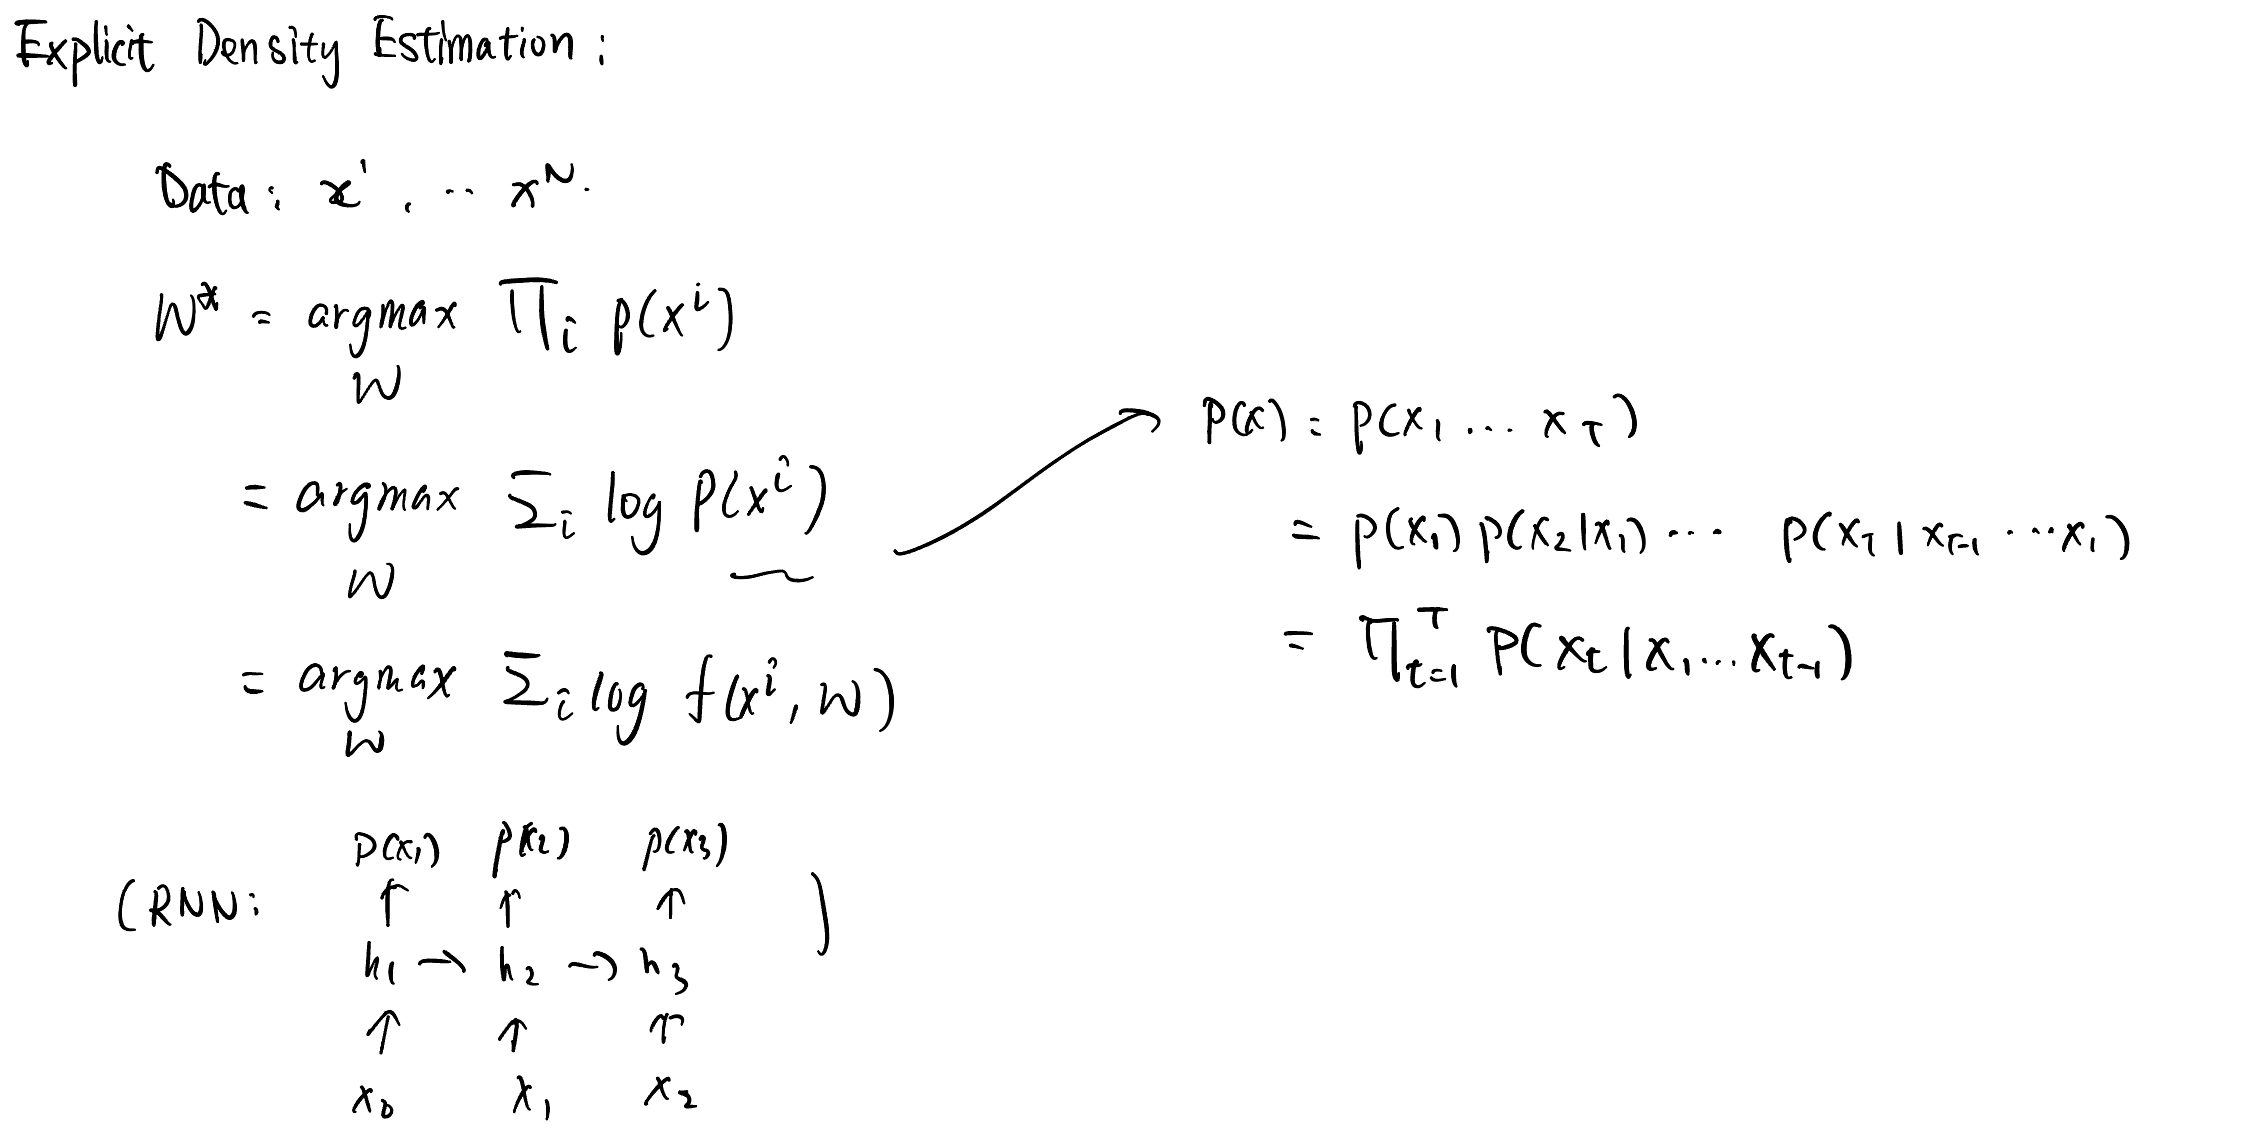 Explicit Density Estimation:
Data: x¹, ·· x^N.
W* = argmax_W ∏_i p(x^i)
= argmax_W Σ_i log p(x^i)
= argmax_W Σ_i log f(x^i, W)
p(x) = p(x₁ ... x_T)
= p(x₁) p(x₂|x₁) ··· p(x_T | x_{T-1} ··· x₁)
= ∏_{t=1}^T p(x_t | x₁ ... x_{t-1})
p(x₁) p(x₂) p(x₃)
(RNN: ↑ ↑ ↑ )
h₁ → h₂ → h₃
↑ ↑ ↑
x₀ x₁ x₂